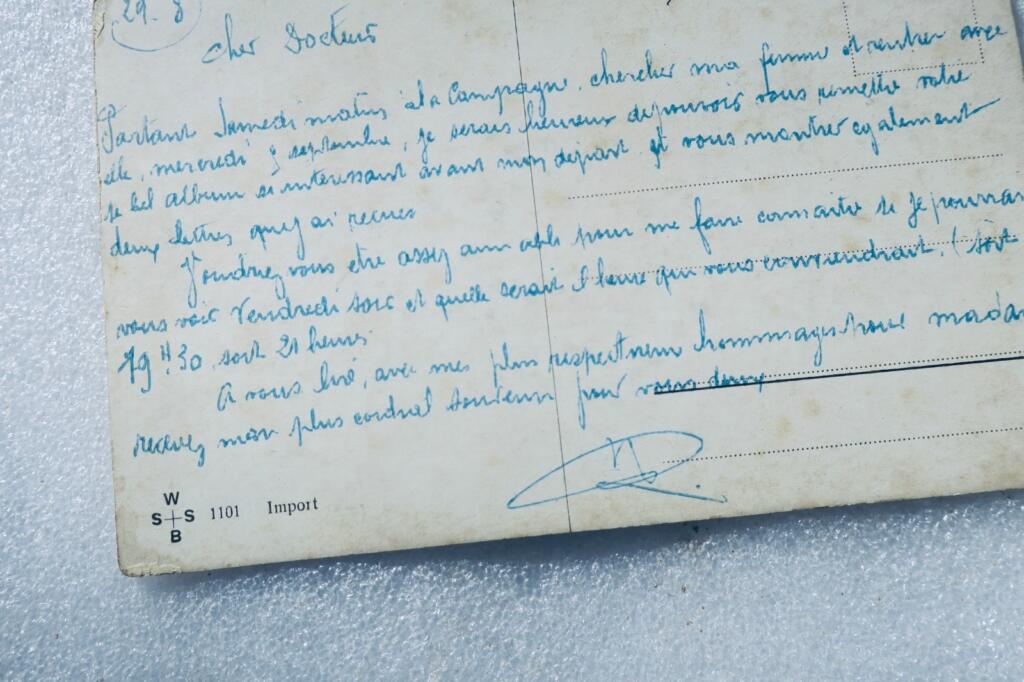 29. 8
Cher Docteur
Partant Samedi matin à la Campagne, chercher ma femme et rentrer avec
elle, mercredi 3 septembre, je serais heureux de pouvoir vous remettre votre
si bel album si intéressant avant mon départ et vous montrer egalement
deux lettres que j'ai reçues
Voudriez vous être assez aimable pour me faire connaitre si je pourrai
vous voir Vendredi soir et quelle serait l'heure qui vous conviendrait. (soit
19H30, soit 21 heures
A vous lire, avec mes plus respectueux hommages pour mada
recevez mon plus cordial souvenir pour vous deux
W
S S 1101 Import
B